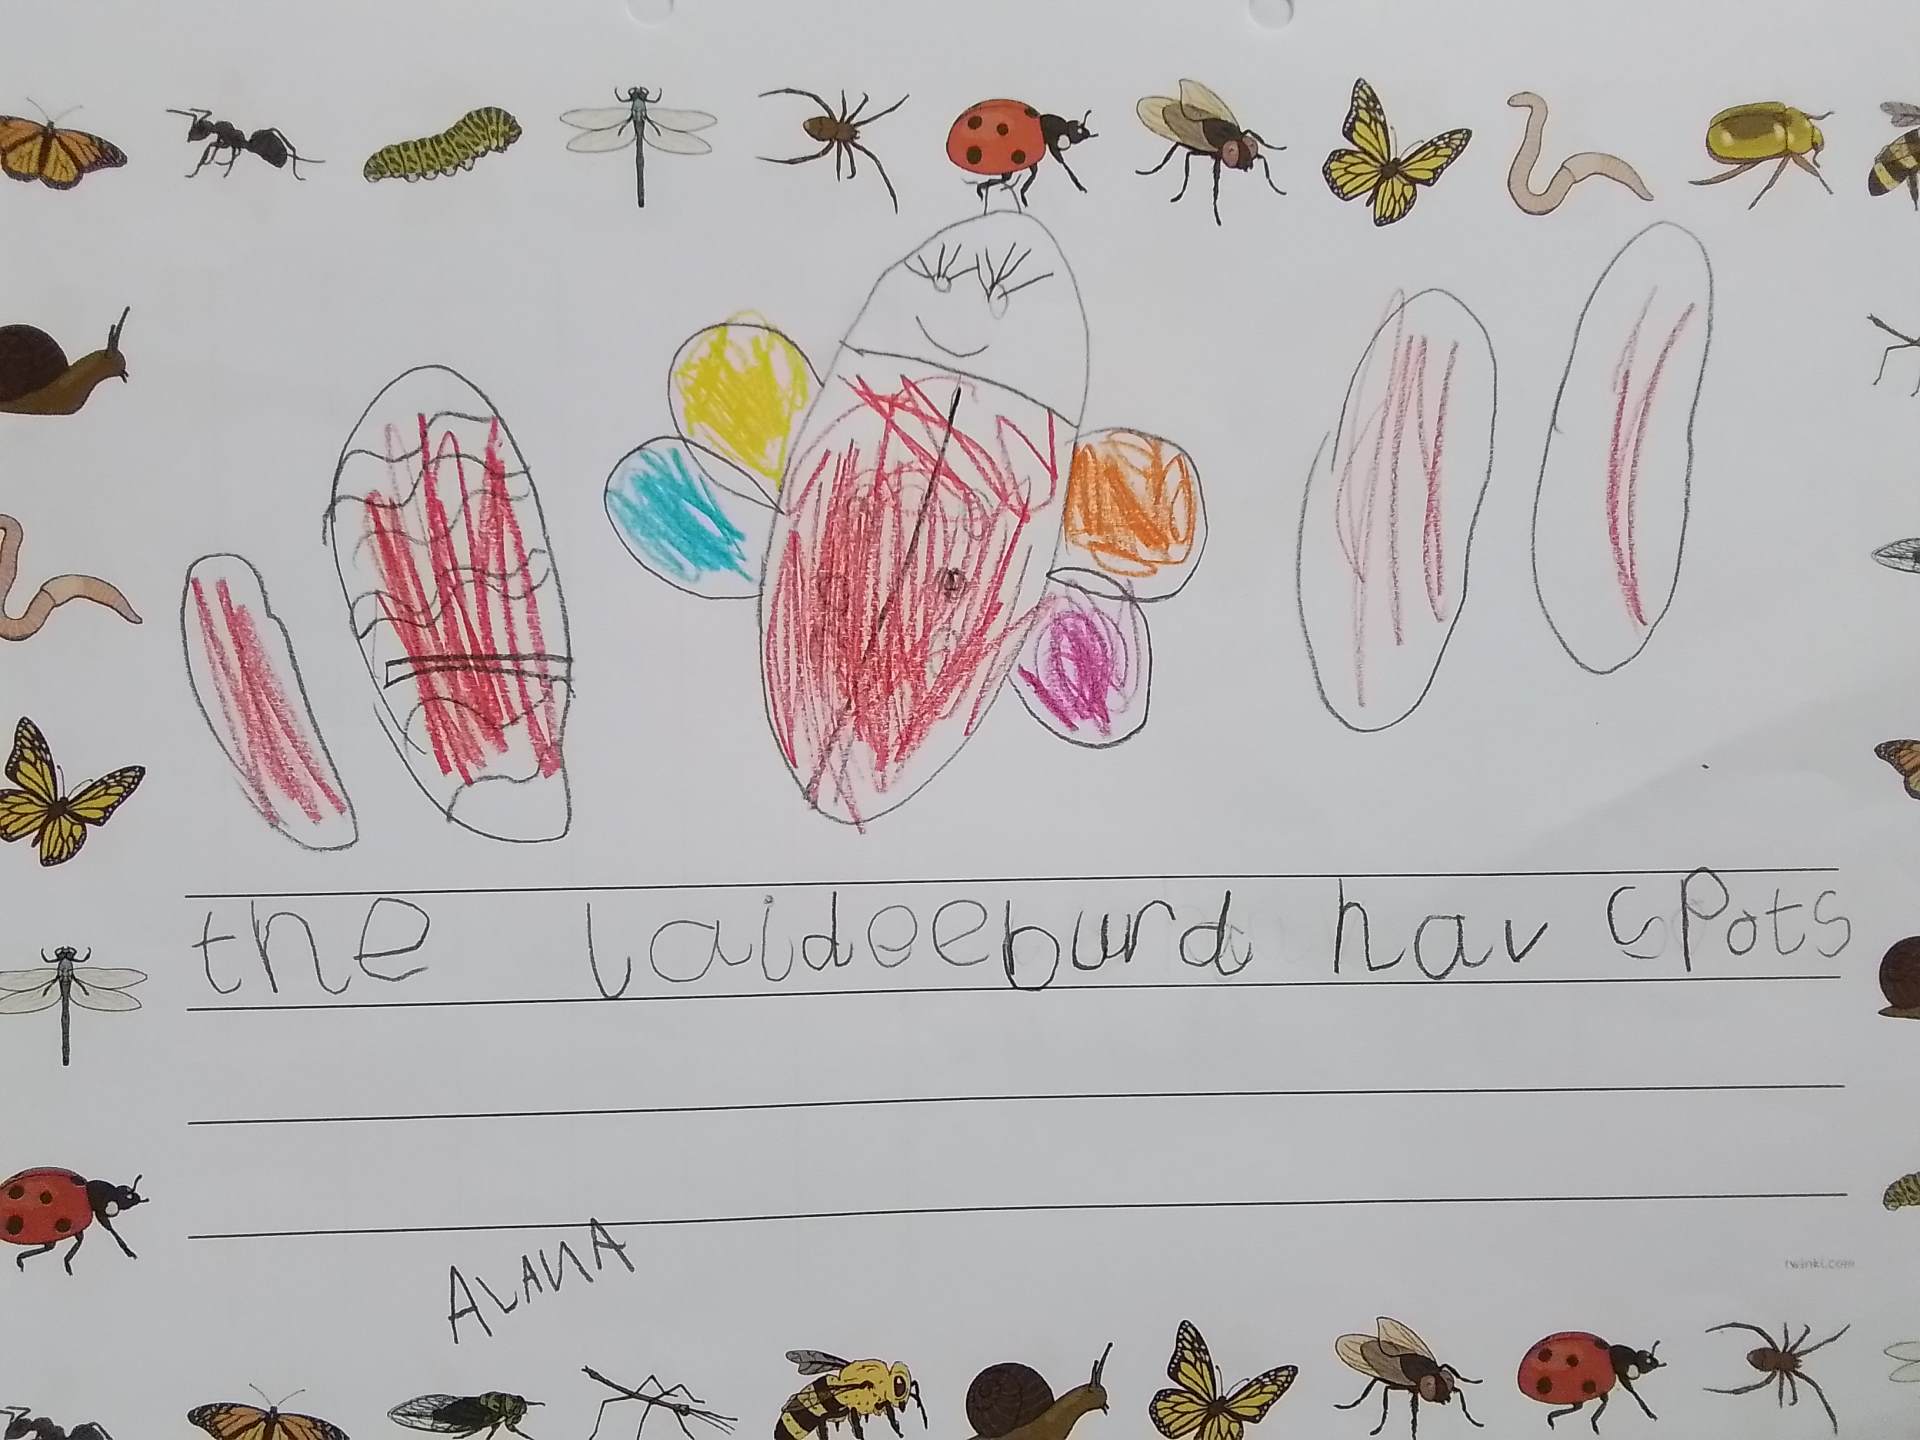 the laideeburd hav spots
twinkl.com
ALANA